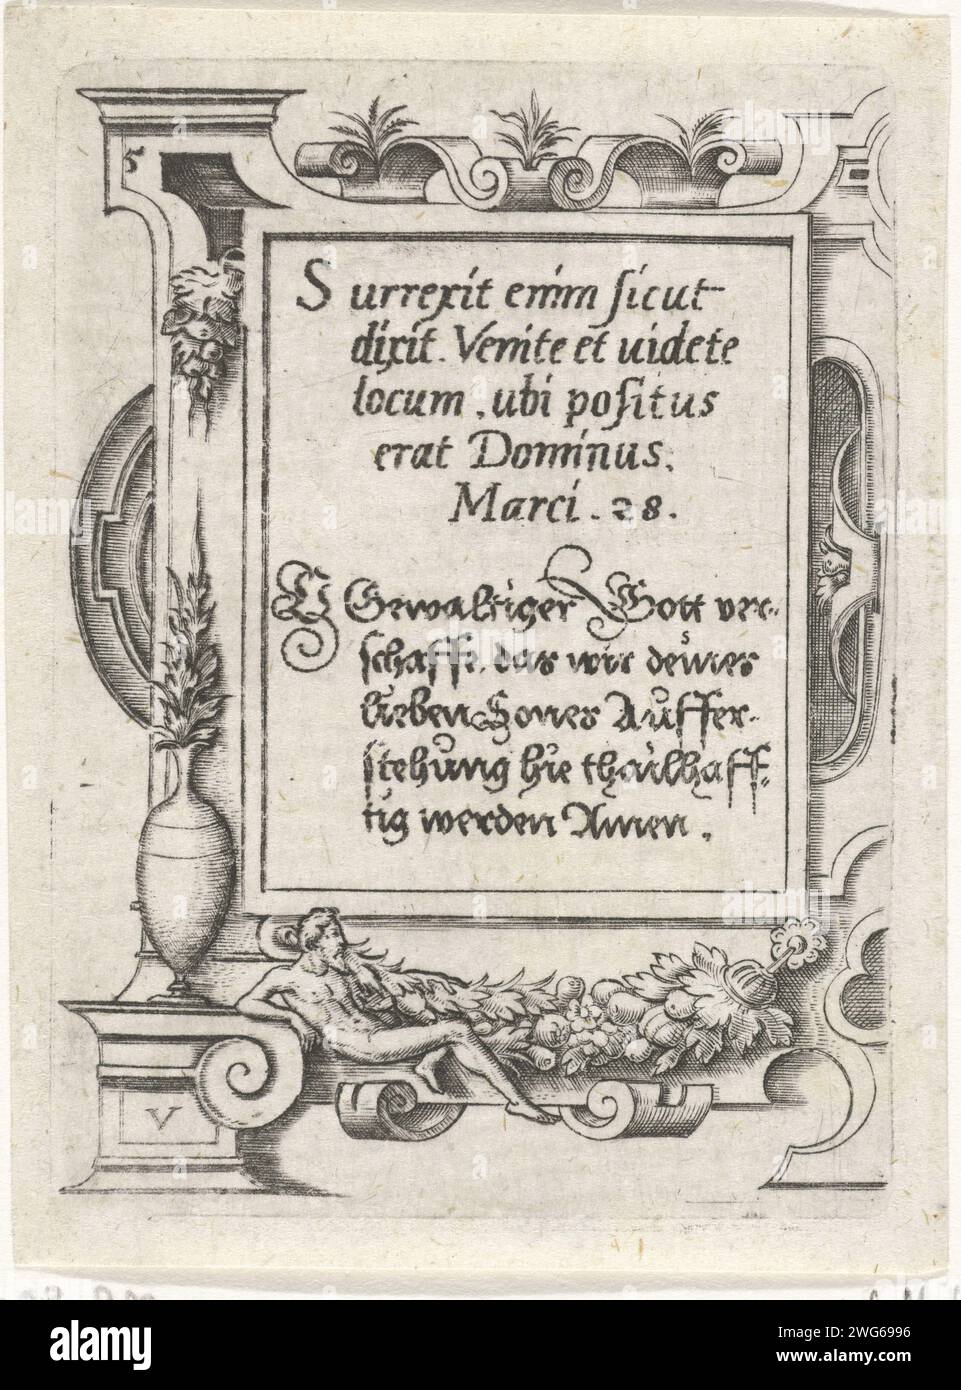 5
Surrexit enim sicut
dixit. Venite et uidete
locum, ubi positus
erat Dominus.
Marci. 28.
O Gewaltiger Gott ver-
schaffe, das wir deines
lieben Sones Auffer-
stehung hie thailhaff-
tig werden Amen.
V
alamy
Image ID: 2WG6996
www.alamy.com